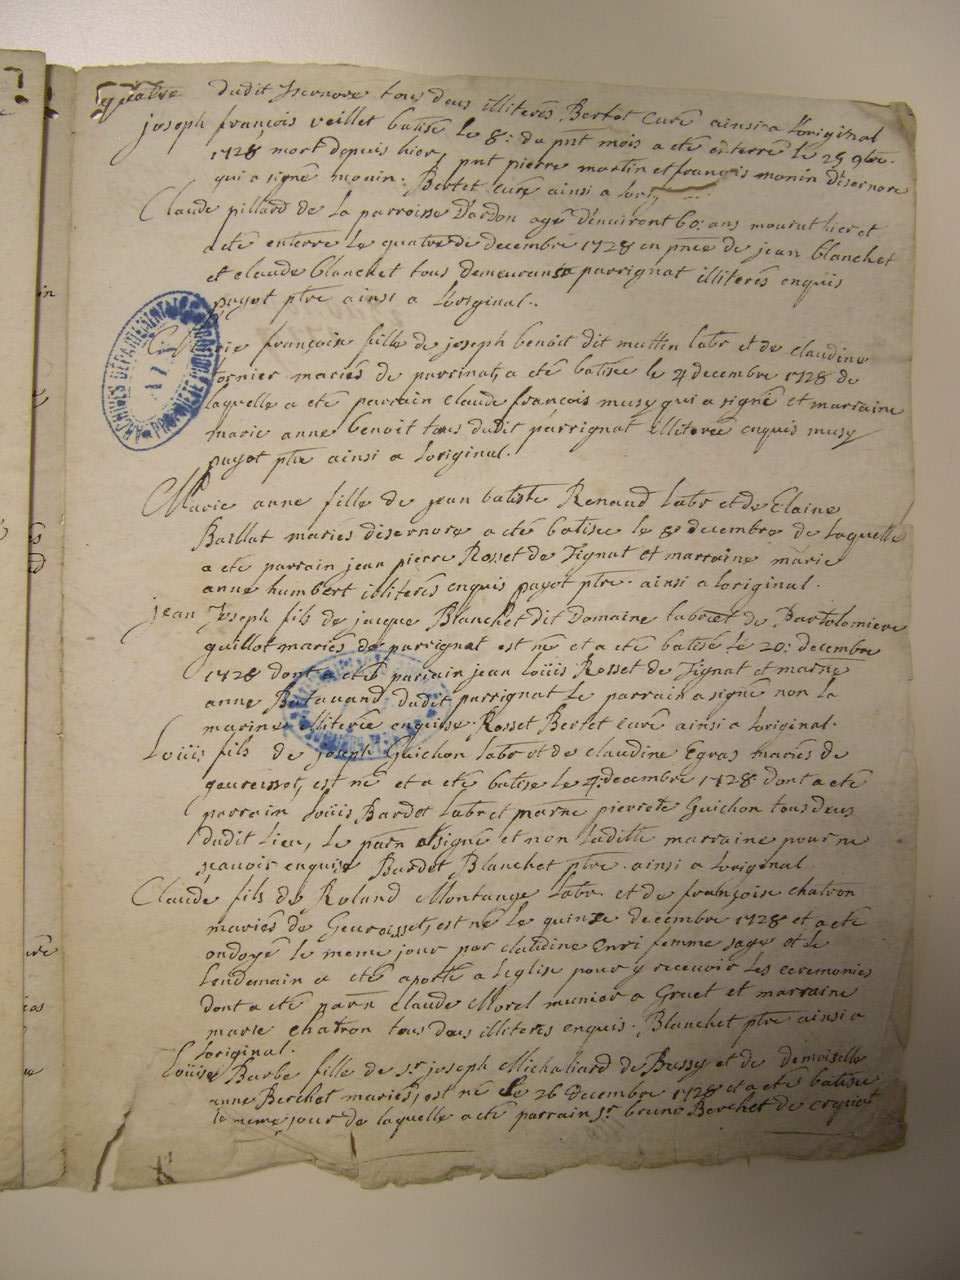 dudit Isernore tous deus illiterés, Bertet curé ainsi a loriginal
joseph françois veillet batisé le 8: du pnt mois a eté enterré le 25 9bre
1728 mort depuis hier, pnt pierre martin et françois monin disernore
qui a signé monin. Bertet curé ainsi a lori
Claude pillard de la parroisse dardon agé denuiront 60: ans mourut hier et
a eté enterré le quatre de decembre 1728 en pnce de jean blanchet
et claude blanchet tous demeurants a parrignat illiterés enquis
payot ptre ainsi a loriginal..
françoise fille de joseph benoit dit mattin labr et de claudine
fornier mariés de parrinat, a eté batisée le 4 decembre 1728 de
laquelle a eté parrain claude françois musy qui a signé et marraine
marie anne benoit tous dudit parrignat illiterée enquis musy
payot ptre ainsi a loriginal.
Marie anne fille de jean batiste Renaud labr et de Elaine
Baillat mariés disernore a eté batisée le 8 decembre de laquelle
a eté parrain jean pierre Rosset de Tignat et marraine marie
anne humbert illiterés enquis payot ptre. ainsi a loriginal.
jean Joseph fils de jacque Blanchet dit Domaine labr et de Bartolomiere
guillot mariés de parrignat est né et a eté batisé le 20: decembre
1728 dont a eté parrain jean loüis Rosset de Tignat et marne
anne dudit parrignat le parrain a signé non la
marine illiterée enquise. Rosset Bertet curé ainsi a loriginal.
Loüis fils de joseph Guichon labr et de claudine Egras mariés de
geureisset, est né et a eté batisé le 4 decembre 1728 dont a eté
parrain loüis Bardet labr et marne pierrete Guichon tous deus
dudit lieu, le parn a signé et non laditte marraine pour ne
sçauoir enquise Bardet Blanchet ptre. ainsi a loriginal
Claude fils de Roland Montange labr. et de françoise chatron
mariés de Geuroisset, est né le quinze decembre 1728 et a eté
ondoyé le meme jour par claudine Enri femme sage et le
lendemain a eté aporté a leglise pour y recevoir les ceremonies
dont a eté parn claude Morel munier a Gruet et marraine
marie chatron tous deus illiterés enquis. Blanchet ptre ainsi a
loriginal.
Loüise Barbe fille de sr joseph Michaliard de Bussy et de demoiselle
anne Berchet mariés, est né le 26 decembre 1728 et a eté batisée
le meme jour de laquelle a eté parrain sr. bruno Berchet de